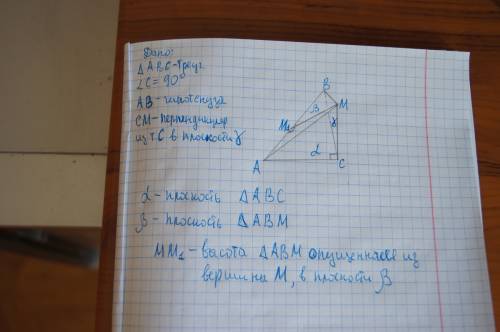 Дано:
ΔABC-треуг
∠C = 90°
AB - гипотенуза
CM - перпендикуляр
из т.C в плоскости γ
B
β
M
M₁
γ
α
A
C
α - плоскость ΔABC
β - плоскость ΔABM
MM₁ - высота ΔABM опущенная из
вершины M, в плоскости β